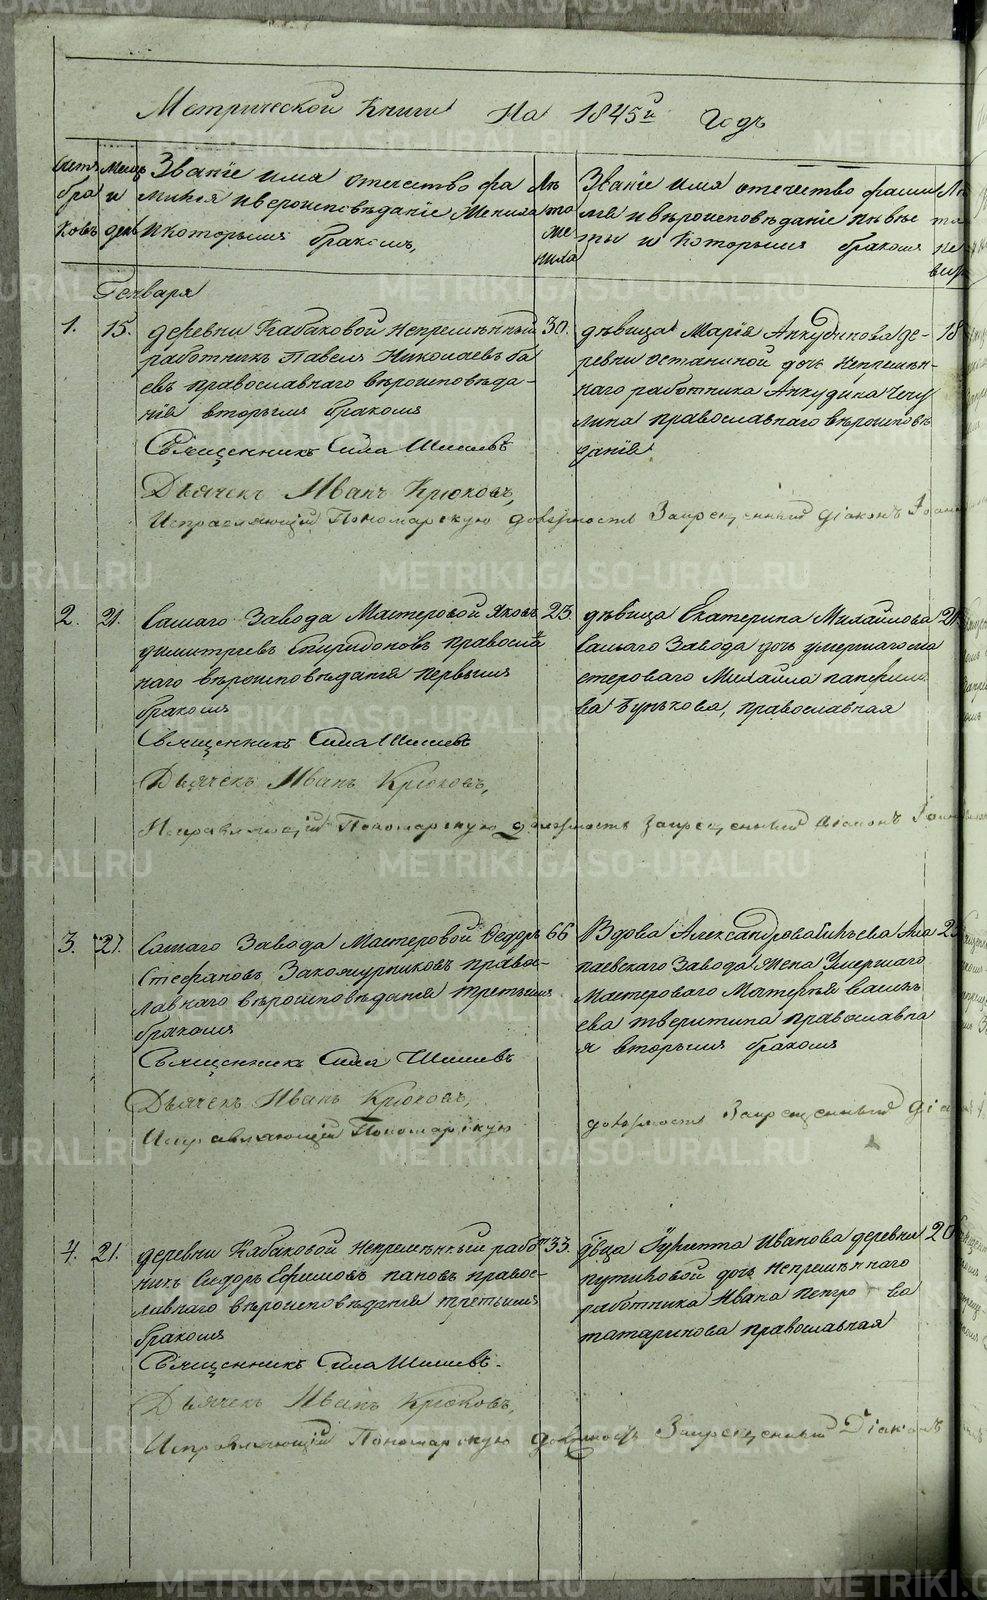 Метрической Книги На 1845й Годъ
Счетъ браковъ
Месяц и день
Званiе имя отечество фа
милия и вероисповѣданiе Жениха
и которымъ бракомъ,
Лѣта жениха
Званiе имя отечество фами
лiя и вѣроисповѣданiе невѣс
ты и которымъ бракомъ
Лѣта невѣс
Генваря
1. 15. деревни Кабаковой непремѣнный 30.
работникъ Павелъ Николаевъ ба
евъ православнаго вѣроисповѣда-
нiя вторымъ бракомъ
Священникъ Сила Шишевъ
Дьячекъ Иванъ Крюковъ,
Исправляющiй Пономарскую должность Запрещенный дiаконъ Iоанн
дѣвица Марiя Анкудинова де- 18
ревни останиной дочь непремѣн-
наго работника Анкудина
православнаго вѣроисповѣ
данiя
2. 21. Самаго Завода Мастеровой Яковъ 23.
димитрiевъ Спиридоновъ правосла
наго вѣроисповѣданiя первымъ
бракомъ
Священникъ Сила Шишевъ
Дьячекъ Иванъ Крюковъ,
Исправляющiй Пономарскую должность Запрещенный дiаконъ Iоанн
дѣвица Екатерина Михайлова 21
самаго Завода дочь умершаго ма
стероваго Михайла панфило
ва Бунькова, православная
3. 21. Самаго Завода Мастеровой Ѳедоръ 66
Стефановъ Закожурниковъ правос-
лавнаго вѣроисповѣданiя третьимъ
бракомъ
Священникъ Сила Шишевъ
Дьячекъ Иванъ Крюковъ,
Исправляющiй Пономарскую должность Запрещенный дiа
Вдова Александра Ала
паевскаго Завода Жена Умершаго
Мастероваго василь
ева тверитина православна
я вторымъ бракомъ
4. 21. деревни Кабаковой Непремѣнный рабо 33.
никъ Сидоръ Ефимовъ пановъ правос-
лавнаго вѣроисповѣданiя третьимъ
бракомъ
Священникъ Сила Шишевъ.
Дьячекъ Иванъ Крюковъ,
Исправляющiй Пономарскую должность Запрещенный Дiаконъ
двца Иванова деревни 20
путиловой дочь непремѣннаго
работника Ивана Петро ва
татаринова православная
METRIKI.GASO-URAL.RU